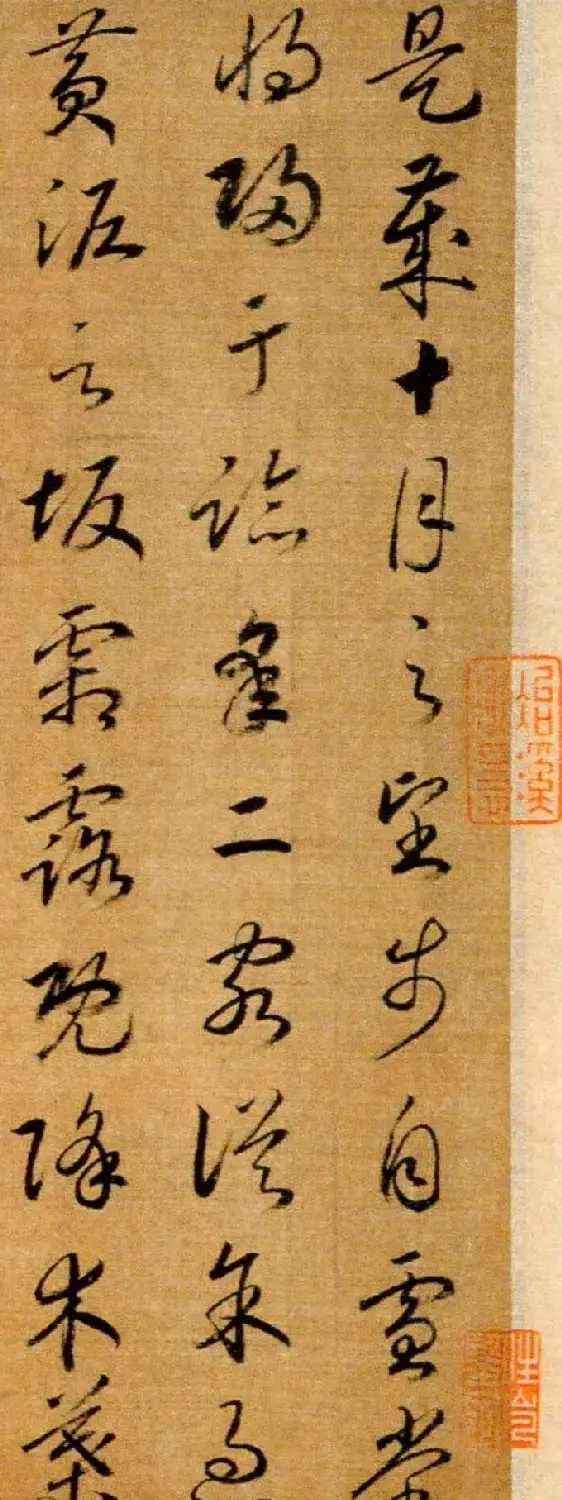 是歲十月之望步自雪堂
將歸于臨皋二客從余過
黃泥之坂霜露既降木葉